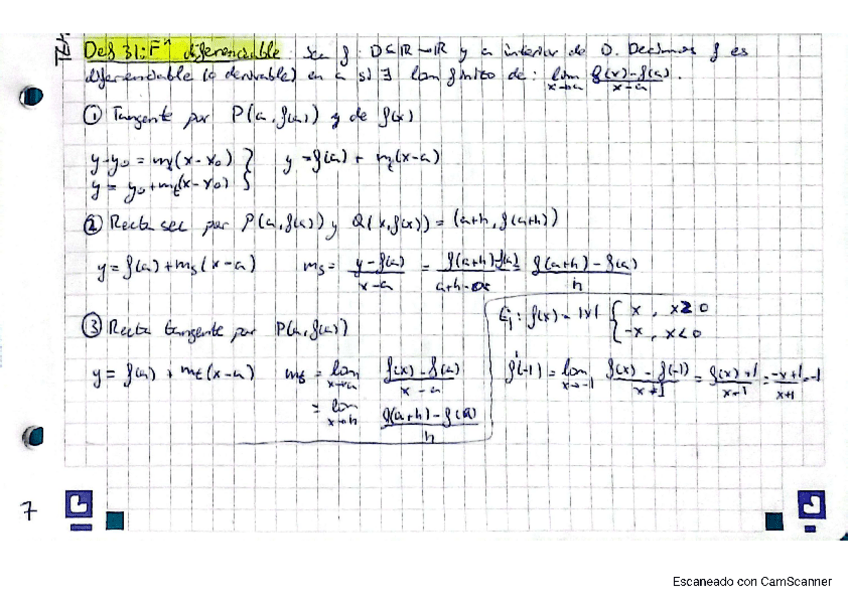 Def 31: Fⁿ diferenciable: sea f: D⊂ℝ→ℝ y a interior de D. Decimos f es
diferenciable (o derivable) en a si ∃ lim finito de: lim x→a (f(x)-f(a))/(x-a).
① Tangente por P(a, f(a)) y de f(x)
y-y₀ = mₜ(x-x₀) } y = f(a) + mₜ(x-a)
y = y₀+mₜ(x-x₀) }
② Recta sec por P(a, f(a)) y Q(x, f(x)) = (a+h, f(a+h))
y = f(a) + mₛ(x-a) mₛ = (y-f(a))/(x-a) = (f(a+h)-f(a))/(a+h-a) = (f(a+h)-f(a))/h
③ Recta tangente por P(a, f(a))
y = f(a) + mₜ(x-a) mₜ = lim x→a (f(x)-f(a))/(x-a)
= lim x→h (f(a+h)-f(a))/h
Ej: f(x) = |x| { x, x≥0
-x, x<0
f'(-1) = lim x→-1 (f(x)-f(-1))/(x+1) = (f(x)+1)/(x-1) = (-x+1)/(x+1) = -1
7
Escaneado con CamScanner